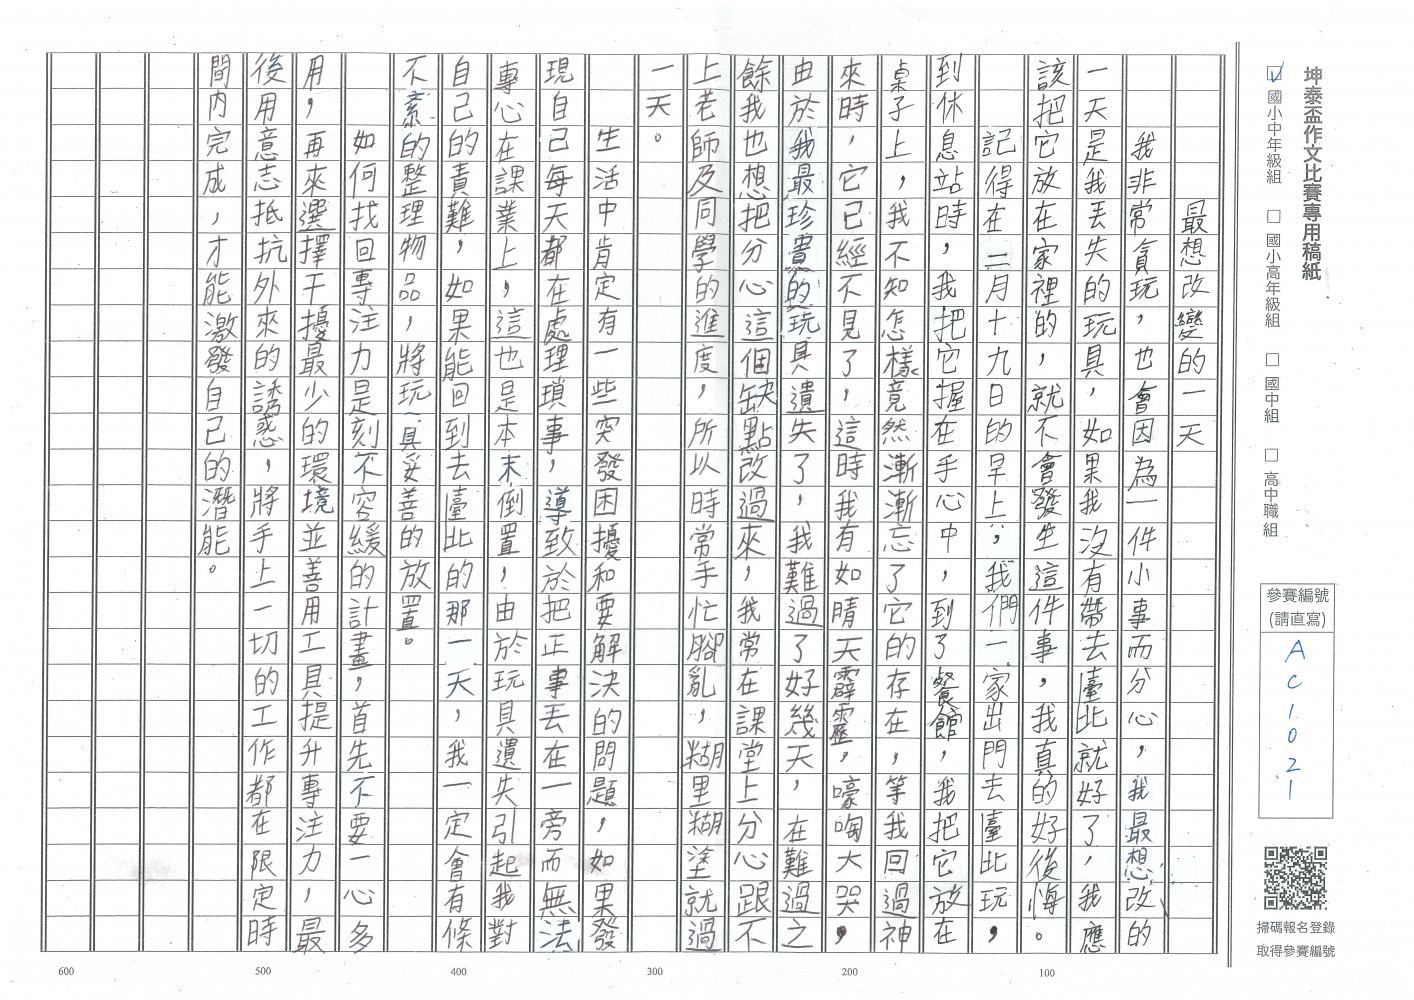 坤泰盃作文比賽專用稿紙
☑國小中年級組 □國小高年級組 □國中組 □高中職組
參賽編號
(請直寫)
AC1021
掃碼報名登錄
取得參賽編號
最想改變的一天
我非常貪玩，也會因為一件小事而分心，我最想改的
一天是我丟失的玩具，如果我沒有帶去臺北就好了，我應
該把它放在家裡的，就不會發生這件事，我真的好後悔。
記得在二月十九日的早上，我們一家出門去臺北玩，
到休息站時，我把它握在手心中，到了餐館，我把它放在
桌子上，我不知怎樣竟然漸漸忘了它的存在，等我回過神
來時，它已經不見了，這時我有如晴天霹靂，嚎啕大哭，
由於我最珍貴的玩具遺失了，我難過了好幾天，在難過之
餘我也想把分心這個缺點改過來，我常在課堂上分心跟不
上老師及同學的進度，所以時常手忙腳亂，糊里糊塗就過
一天。
生活中肯定有一些突發困擾和要解決的問題，如果發
現自己每天都在處理瑣事，導致於把正事丟在一旁而無法
專心在課業上，這也是本末倒置，由於玩具遺失引起我對
自己的責難，如果能回到去臺北的那一天，我一定會有條
不紊的整理物品，將玩具妥善的放置。
如何找回專注力是刻不容緩的計畫，首先不要一心多
用，再來選擇干擾最少的環境並善用工具提升專注力，最
後用意志抵抗外來的誘惑，將手上一切的工作都在限定時
間內完成，才能激發自己的潛能。
600 500 400 300 200 100